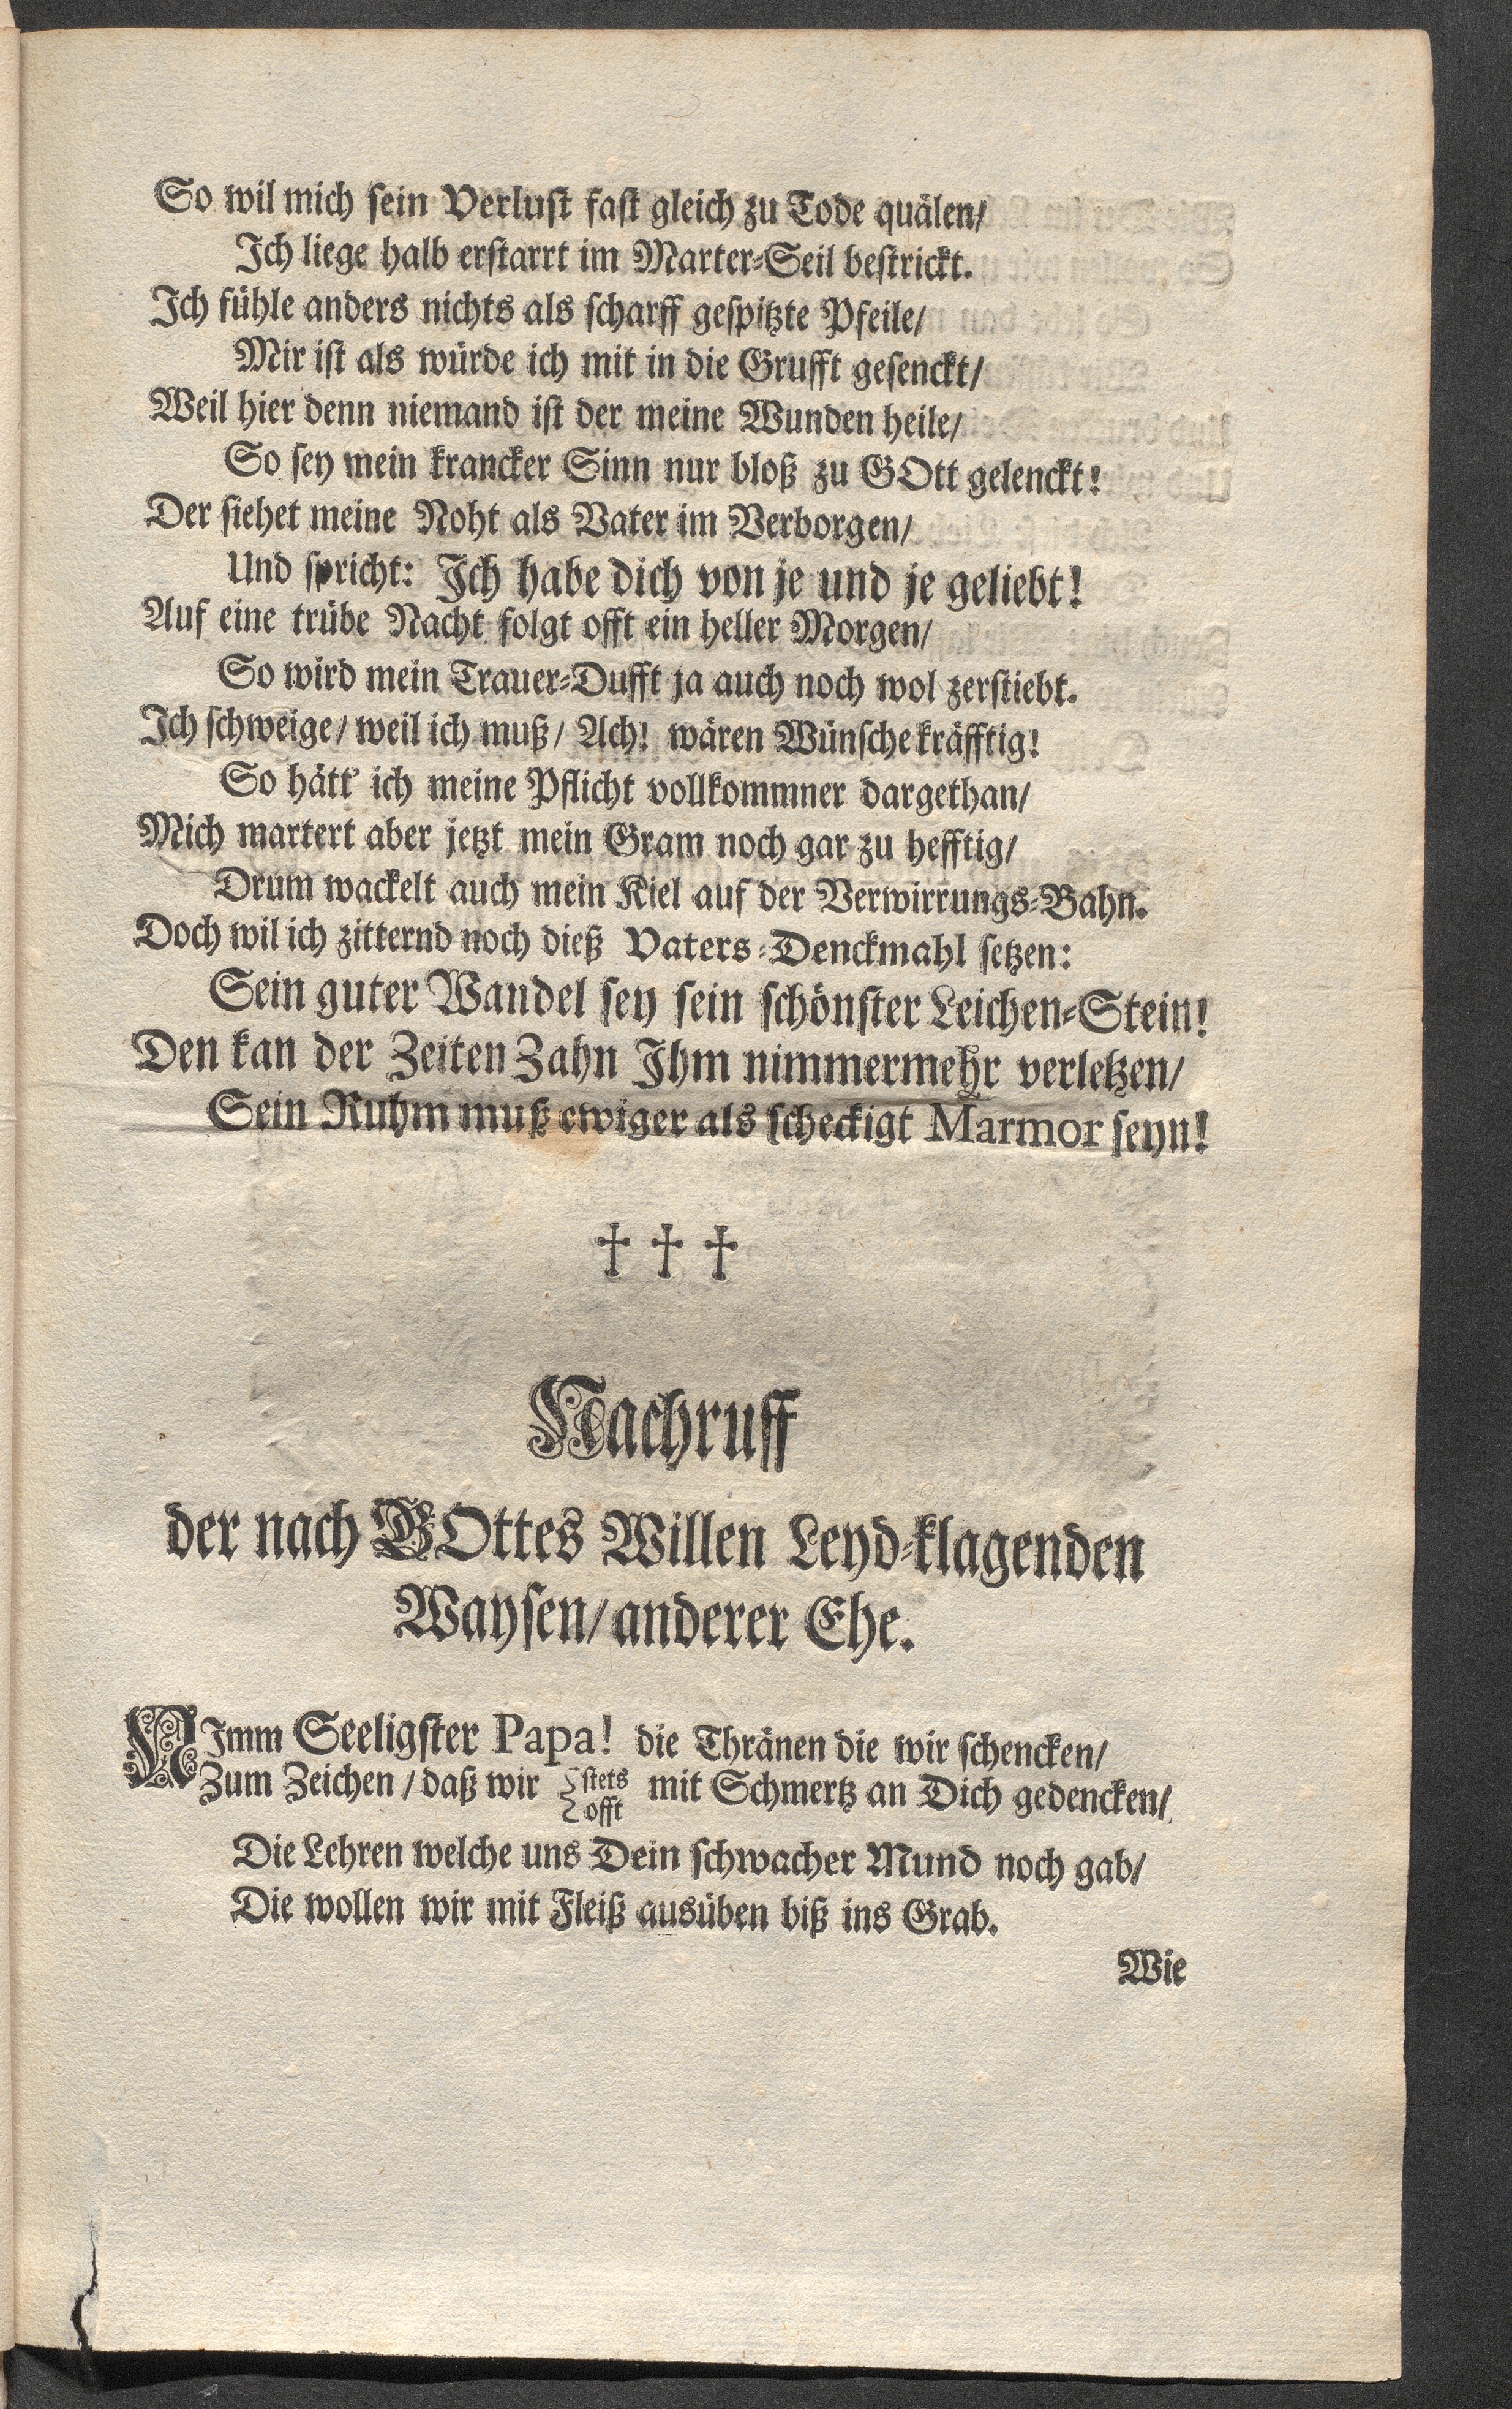 So wil mich sein Verlust fast gleich zu Tode quälen/
Ich liege halb erstarrt im Marter-Seil bestrickt.
Ich fühle anders nichts als scharff gespitzte Pfeile/
Mir ist als würde ich mit in die Grufft gesenckt/
Weil hier denn niemand ist der meine Wunden heile/
So sey mein krancker Sinn nur bloß zu GOtt gelenckt!
Der siehet meine Noht als Vater im Verborgen/
Und spricht: Ich habe dich von je und je geliebt!
Auf eine trübe Nacht folgt offt ein heller Morgen/
So wird mein Trauer-Dufft ja auch noch wol zerstiebt.
Ich schweige/ weil ich muß/ Ach! wären Wünsche kräfftig!
So hätt' ich meine Pflicht vollkommner dargethan/
Mich martert aber jetzt mein Gram noch gar zu hefftig/
Drum wackelt auch mein Kiel auf der Verwirrungs-Bahn.
Doch wil ich zitternd noch dieß Vaters-Denckmahl setzen:
Sein guter Wandel sey sein schönster Leichen-Stein!
Den kan der Zeiten Zahn Ihm nimmermehr verletzen/
Sein Ruhm muß ewiger als scheckigt Marmor seyn!
† † †
Nachruff
der nach GOttes Willen Leyd-klagenden
Waysen/ anderer Ehe.
NImm Seeligster Papa! die Thränen die wir schencken/
Zum Zeichen/ daß wir {stets offt mit Schmertz an Dich gedencken/
Die Lehren welche uns Dein schwacher Mund noch gab/
Die wollen wir mit Fleiß ausüben biß ins Grab.
Wie